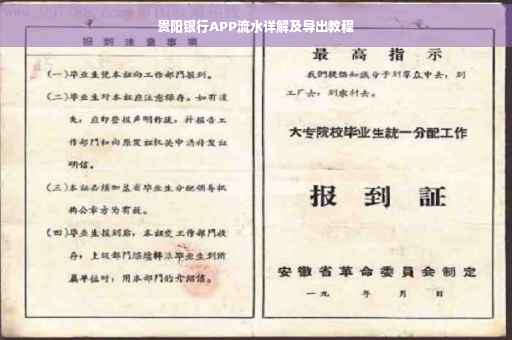 贵阳银行APP流水详解及导出教程
报到注意事项
(一)毕业生凭本证向工作部门报到。
(二)毕业生对本证应注意保存。如有遗
失,应即登报声明作废,并报告工
作部门和向原发证机关申请补发证
明信。
(三)本证必须加盖省毕业生分配领导机
构公章方为有效。
(四)毕业生报到后,本证交工作部门收
存;上级部门继续转派毕业生到所
属单位时,用本部门的介绍信。
最高指示
我们提倡知识分子到群众中去,到
工厂去,到农村去。
大专院校毕业生统一分配工作
报到证
安徽省革命委员会制定
一九 年 月 日